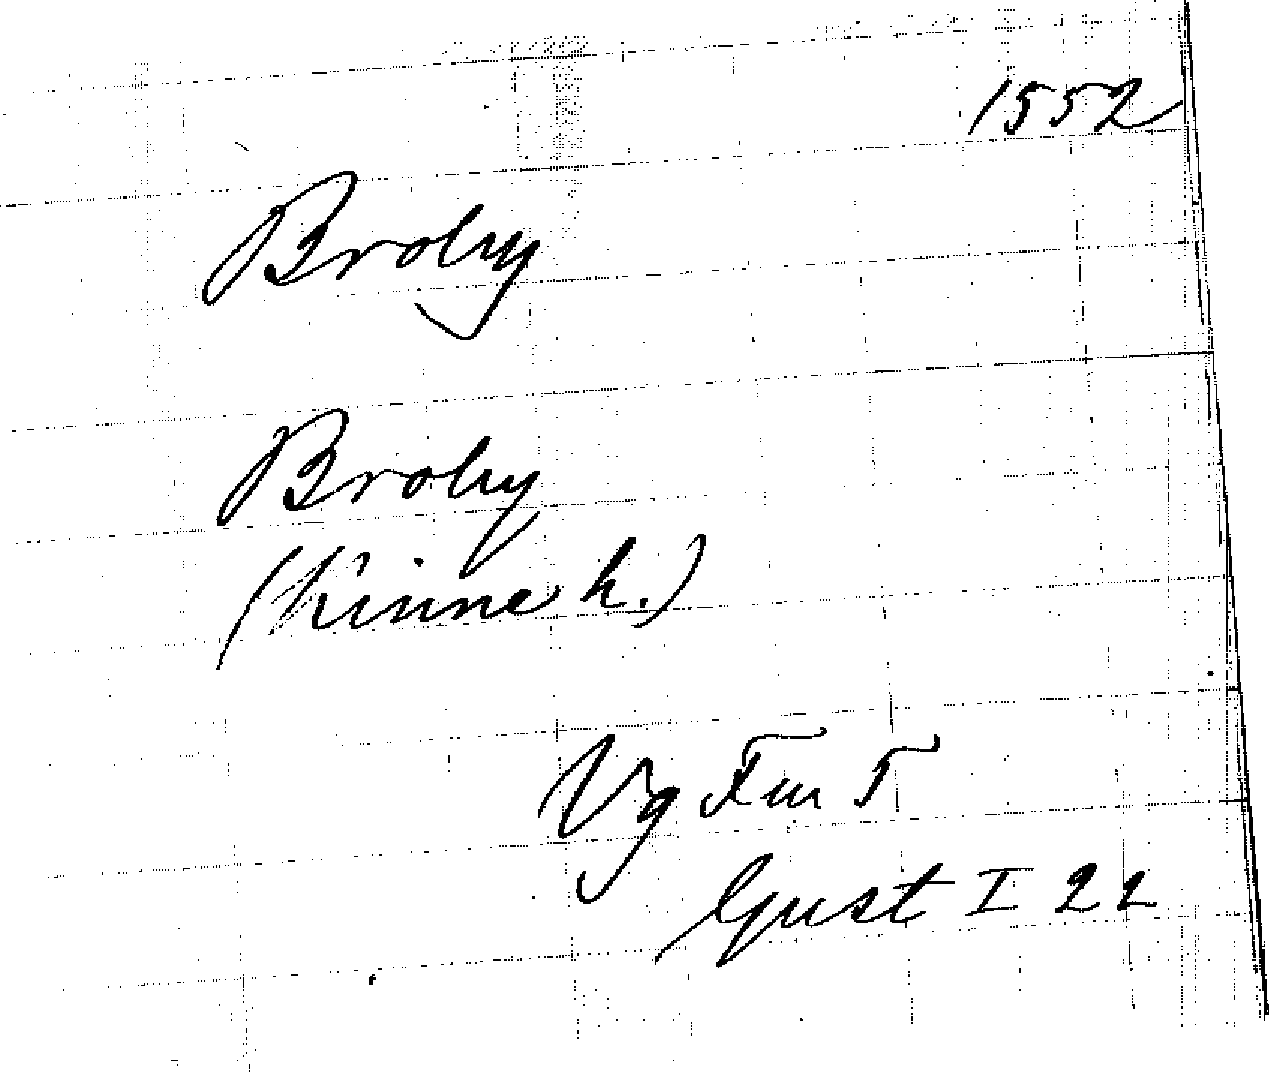 1552
Broby
Broby
(Kinne h.)
Vg Fm 5
Gust I 22